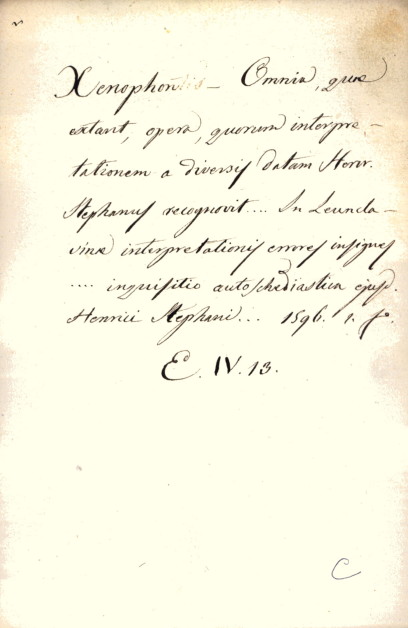 Xenophontis – Omnia, quae
extant, opera, quorum interpre-
tationem a diversis datam Henr.
Stephanus recognovit.... In Leuncla-
vinae interpretationis errores insignes
.... inquisitio autoschediastica ejusd.
Henrici Stephani... 1596. 1. fo.
E. IV. 13.
C